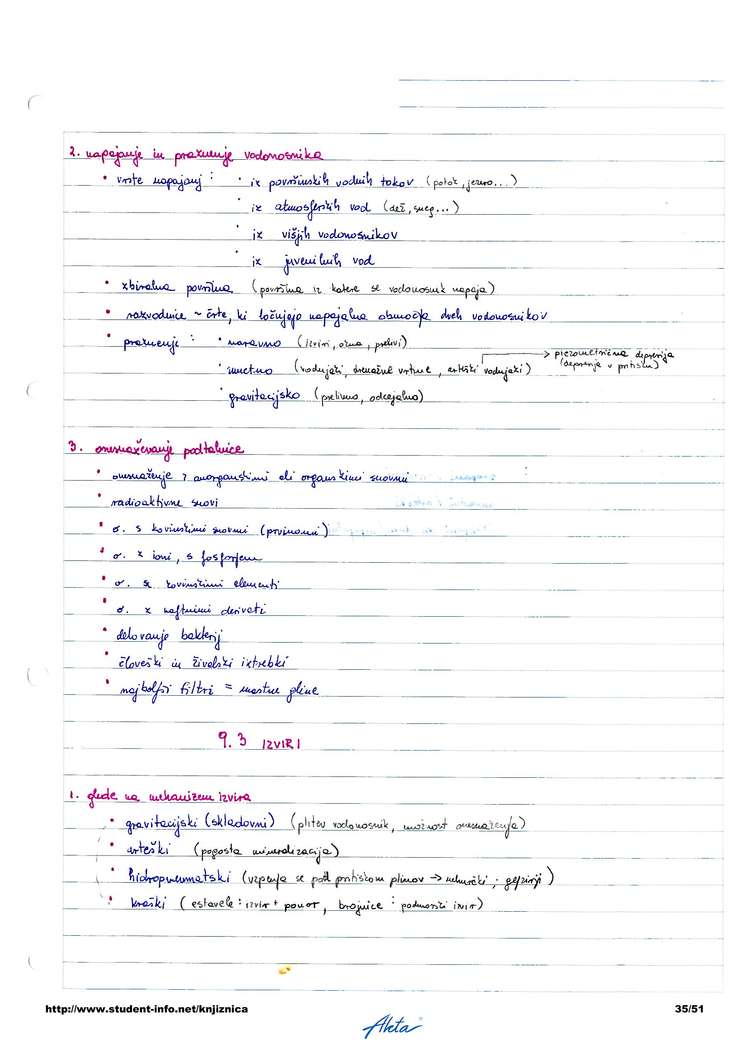 2. napajanje in praznenje vodonosnika
• vrste napajanj : • iz površinskih vodnih tokov (potok, jezero...)
• iz atmosferskih vod (dež, sneg...)
• iz višjih vodonosnikov
• iz juvenilnih vod
• zbiralna površina (površina iz katere se vodonosnik napaja)
• razvodnice ~ črte, ki ločujejo napajalna območja dveh vodonosnikov
• praznenje : • naravno (izviri, okna, prelivi)
• umetno (vodnjaki, drenažne vrtine, arteški vodnjaki) → piezometrična depresija
(depresija v pritisku)
• gravitacijsko (prelivno, odcejalno)
3. onesnaževanje podtalnice
• onesnaženje z anorganskimi ali organskimi snovmi
• radioaktivne snovi
• o. s kovinskimi snovmi (prvinami)
• o. z ioni, s fosforjem
• o. s kovinskimi elementi
• o. z naftnimi derivati
• delovanje bakterij
• človeški in živalski iztrebki
• najboljši filtri = mastne gline
9.3 IZVIRI
1. glede na mehanizem izvira
• gravitacijski (skladovni) (plitev vodonosnik, možnost onesnaženja)
• arteški (pogosta mineralizacija)
• hidropneumatski (vzpenja se pod pritiskom plinov → mehurčki, gejzirji)
• kraški (estavele : izvir + ponor, brojnice : podmorski izvir)
http://www.student-info.net/knjiznica
35/51
Akta